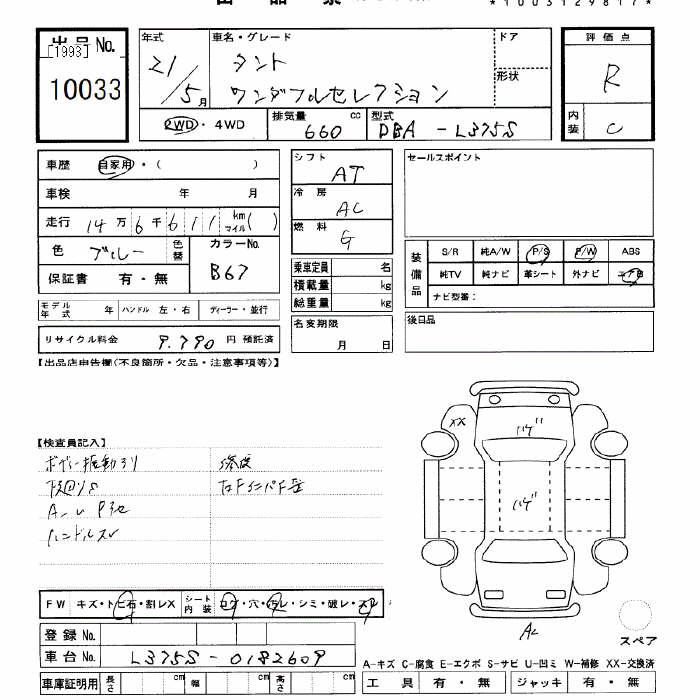 *1003129817*
出品No.
[1993]
10033
年式 車名・グレード ドア
21/5月 タント
ワンダフルセレクション
形状
2WD・4WD 排気量 660 cc 型式 DBA-L375S
評価点 R
内装 C
車歴 自家用・( )
車検 年 月
走行 14万6千611 km マイル( )
色 ブルー 色替 カラーNo. B67
保証書 有・無
モデル年式 年 ハンドル 左・右 ディーラー・並行
リサイクル料金 9.790 円 預託済
シフト AT
冷房 AC
燃料 G
乗車定員 名
積載量 kg
総重量 kg
名変期限
月 日
セールスポイント
装備品 S/R 純A/W P/S P/W ABS
純TV 純ナビ 革シート 外ナビ エアB
ナビ型番:
後日品
【出品店申告欄(不良箇所・欠品・注意事項等)】
【検査員記入】
ハンドルスレ
XX
ハゲ
ハゲ
FW キズ・トビ石・割レX シート内装 コゲ・穴・汚レ・シミ・破レ・スレ
登録No.
車台No. L375S-0182609
車庫証明用 長さ cm 幅 cm 高さ cm
スペア
A-キズ C-腐食 E-エクボ S-サビ U-凹ミ W-補修 XX-交換済
工具 有・無 ジャッキ 有・無